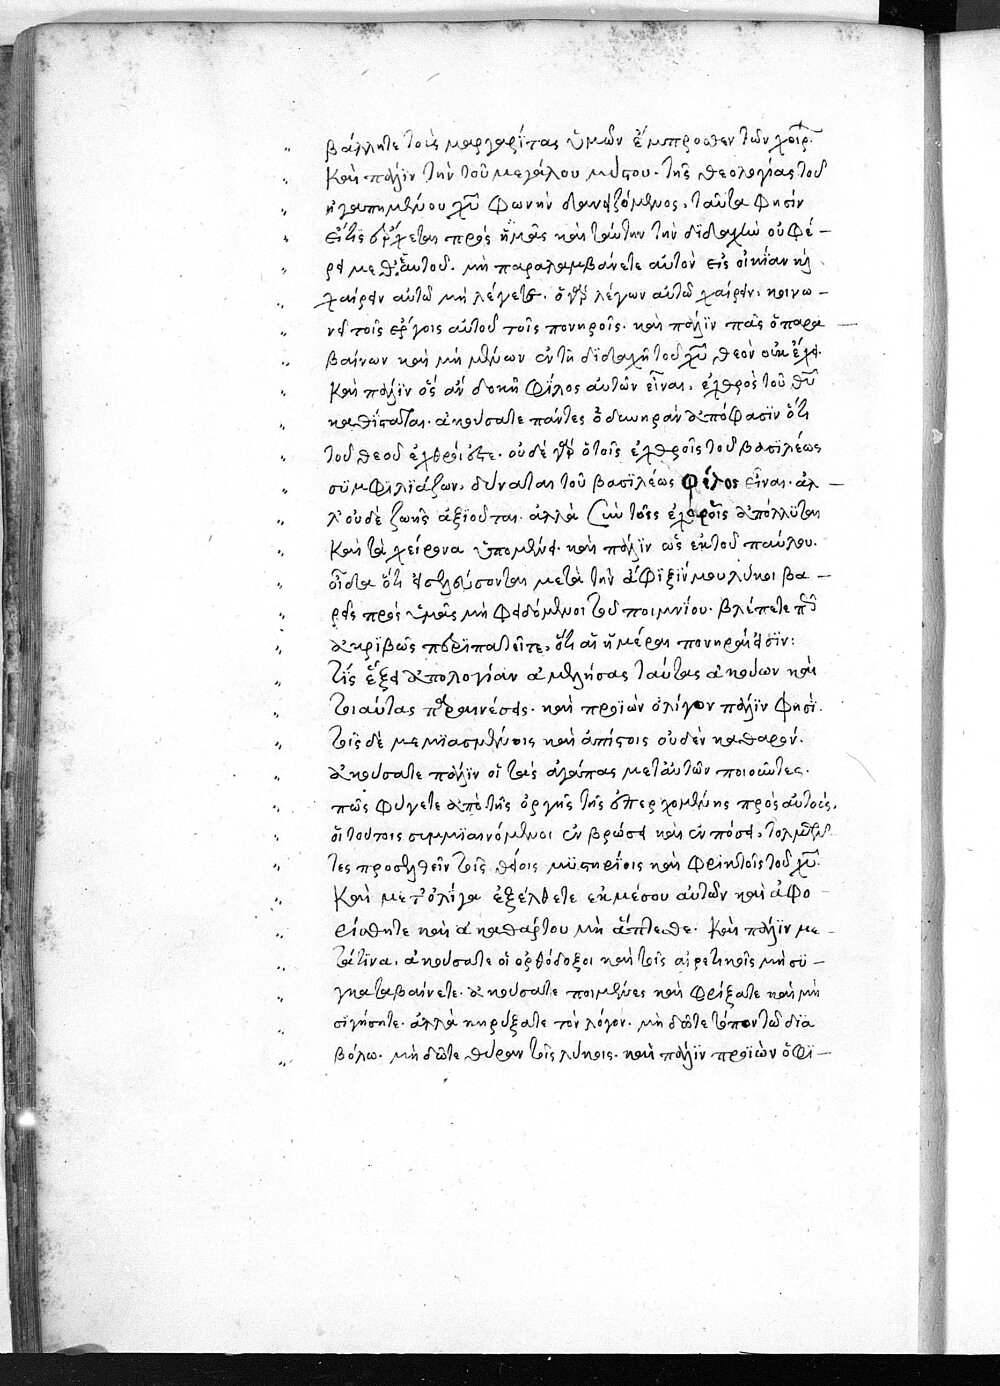 βάλλητε τοὺς μαργαρίτας ὑμῶν ἔμπροσθεν τῶν χοίρ.
Καὶ πάλιν τὴν τοῦ μεγάλου μύστου· τῆς θεολογίας τοῦ
ἠγαπημένου χῦ φωνὴν διανιζόμενος, ταῦτα φησίν
εἴτις ἔρχεται πρὸς ἡμᾶς καὶ ταύτην τὴν διδαχὴν οὐ φέ –
ρει μεθ' ἑαυτοῦ. μὴ παραλαμβάνετε αὐτὸν εἰς οἰκίαν κὴ
χαίρειν αὐτῶ μὴ λέγετε. ὁ γὰρ λέγων αὐτῶ χαίρειν, κοινω –
νεῖ τοῖς ἔργοις αὐτοῦ τοῖς πονηροῖς. καὶ πάλιν πᾶς ὁ παρα –
βαίνων καὶ μὴ μένων ἐν τῆ διδαχῆ τοῦ χῦ θεὸν οὐκ ἔχει.
Καὶ πάλιν ὃς ἂν δοκῆ φίλος αὐτῶν εἶναι, ἐχθρὸς τοῦ θῦ
καθίσαται. ἀκούσατε πάντες ὀδυνηρὰν ἀπόφασιν ὅτι
τοῦ θεοῦ ἐχθροί ἐστε. οὐδὲ γὰρ ὁ τοῖς ἐχθροῖς τοῦ βασιλέως
συμφιλιάζων, δύναται τοῦ βασιλέως φίλος εἶναι. ἀλ –
λ' οὐδὲ ζωῆς ἀξιοῦται. ἀλλὰ σὺν τοῖς ἐχθροῖς ἀπόλλυται
Καὶ τὰ χείρονα ὑπομένει. καὶ πάλιν ὡς ἐκ τοῦ παύλου.
οἶδα ὅτι εἰσελεύσονται μετὰ τὴν ἄφιξίν μου λύκοι βα –
ρεῖς πρὸς ὑμᾶς μὴ φειδόμενοι τοῦ ποιμνίου. βλέπετε πῶ
ἀκριβῶς περιπατεῖτε, ὅτι αἱ ἡμέραι πονηραί εἰσιν:
τίς ἕξει ἀπολογίαν ἀμελήσας ταύτας ἀκούων καὶ
τοιαύτας παραινέσεις. καὶ προϊὼν ὀλίγον πάλιν φησί.
τοῖς δὲ μεμιασμένοις καὶ ἀπίστοις οὐδὲν καθαρόν.
ἀκούσατε πάλιν οἱ τὰς ἀγάπας μετ' αὐτῶν ποιοῦντες.
πῶς φύγετε ἀπὸ τῆς ὀργῆς τῆς ἐπερχομένης πρὸς αὐτούς,
οἱ τούτοις συμμιαινόμενοι ἐν βρώσει καὶ ἐν πόσει, τολμῶν
τες προσελθεῖν τοῖς θείοις μυστηρίοις καὶ φρικτοῖς τοῦ χῦ.
Καὶ μετ' ὀλίγα ἐξέλθετε ἐκ μέσου αὐτῶν καὶ ἀφο –
ρίσθητε καὶ ἀκαθάρτου μὴ ἅπτεσθε. Καὶ πάλιν με –
τά τινα, ἀκούσατε οἱ ὀρθόδοξοι καὶ τοῖς αἱρετικοῖς μὴ συ –
γκαταβαίνετε. ἀκούσατε ποιμένες καὶ φρίξατε καὶ μὴ
σιγήσητε. ἀλλὰ κηρύξατε τὸν λόγον. μὴ δῶτε τόπον τῶ δια
βόλω. μὴ δῶτε θύραν τοῖς λύκοις. καὶ πάλιν προϊὼν ὀφι –